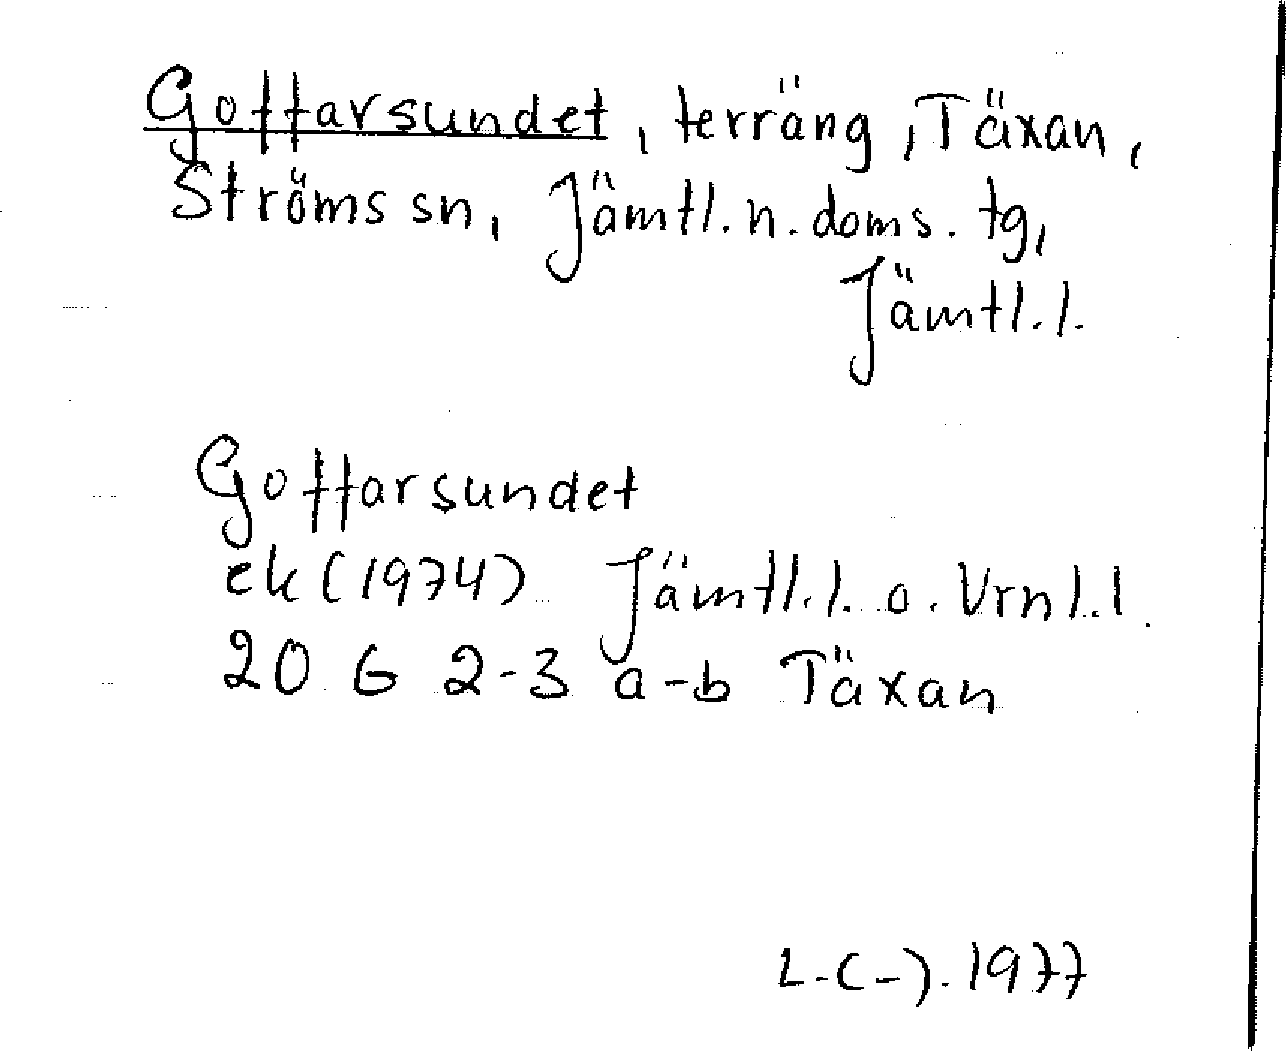 Gottarsundet, terräng, Täxan,
Ströms sn, Jämtl. n. doms. tg,
Jämtl. l.
Gottarsundet
ek (1974) Jämtl. l. o. Vrnl. l.
20 G 2-3 a-b Täxan
L-(-). 1977